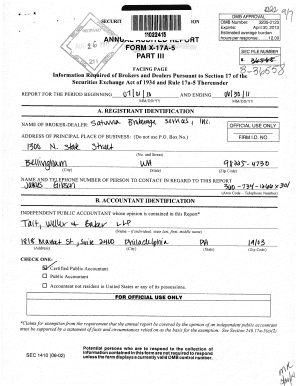 SECURIT
ION
11022415
OMB APPROVAL
OMB Number: 3235-0123
Expires: April 30, 2013
Estimated average burden
hours per response..... 12.00
ANNUAL AUDITED REPORT
FORM X-17A-5
PART III
SEC FILE NUMBER
8-36558
FACING PAGE
Information Required of Brokers and Dealers Pursuant to Section 17 of the
Securities Exchange Act of 1934 and Rule 17a-5 Thereunder
REPORT FOR THE PERIOD BEGINNING 07/01/2010 AND ENDING 06/30/11
MM/DD/YY MM/DD/YY
A. REGISTRANT IDENTIFICATION
NAME OF BROKER-DEALER: Saturna Brokerage Services, Inc.
OFFICIAL USE ONLY
ADDRESS OF PRINCIPAL PLACE OF BUSINESS: (Do not use P.O. Box No.)
FIRM I.D. NO.
1300 N. State Street
(No. and Street)
Bellingham WA 98225-4730
(City) (State) (Zip Code)
NAME AND TELEPHONE NUMBER OF PERSON TO CONTACT IN REGARD TO THIS REPORT
James Gibson
(Area Code - Telephone Number)
B. ACCOUNTANT IDENTIFICATION
INDEPENDENT PUBLIC ACCOUNTANT whose opinion is contained in this Report*
Tait, Weller & Baker LLP
(Name - if individual, state last, first, middle name)
1818 Market St, Suite 2400 Philadelphia PA 19103
(Address) (City) (State) (Zip Code)
CHECK ONE:
Certified Public Accountant
Public Accountant
Accountant not resident in United States or any of its possessions.
FOR OFFICIAL USE ONLY
*Claims for exemption from the requirement that the annual report be covered by the opinion of an independent public accountant
must be supported by a statement of facts and circumstances relied on as the basis for the exemption. See Section 240.17a-5(e)(2)
Potential persons who are to respond to the collection of
information contained in this form are not required to respond
unless the form displays a currently valid OMB control number.
SEC 1410 (06-02)